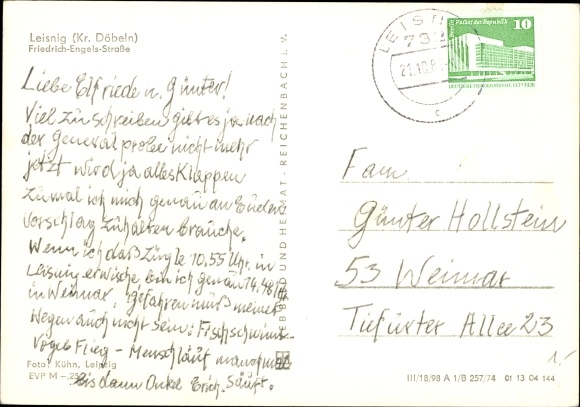 Leisnig (Kr. Döbeln)
Friedrich-Engels-Straße
Liebe Elfriede u. Günter!
Viel zu schreiben gibt es ja nach
der Generalprobe nicht mehr
jetzt wird ja alles Klappen
Zumal ich mich genau an Euren
Vorschlag zuhalten brauche.
Wenn ich daß Zügle 10.55 Uhr. in
Leisnig erwische bin ich genau 14.48
in Weimar. gefahren muß meinet
wegen auch nicht sein: Fisch schwimm-
Vogel Flieg - Mensch läuf manchmal
bis dann Onkel Erich. Säuft.
Foto: Kühn, Leipzig
EVP M -,25
BILD UND HEIMAT · REICHENBACH i. V.
LEISNIG
21.10.8
c
Berlin Palast der Republik
10
DEUTSCHE DEMOKRATISCHE REPUBLIK
Fam
Günter Hollstein
53 Weimar
Tiefurter Allee 23
III/18/98 A 1/B 257/74 01 13 04 144